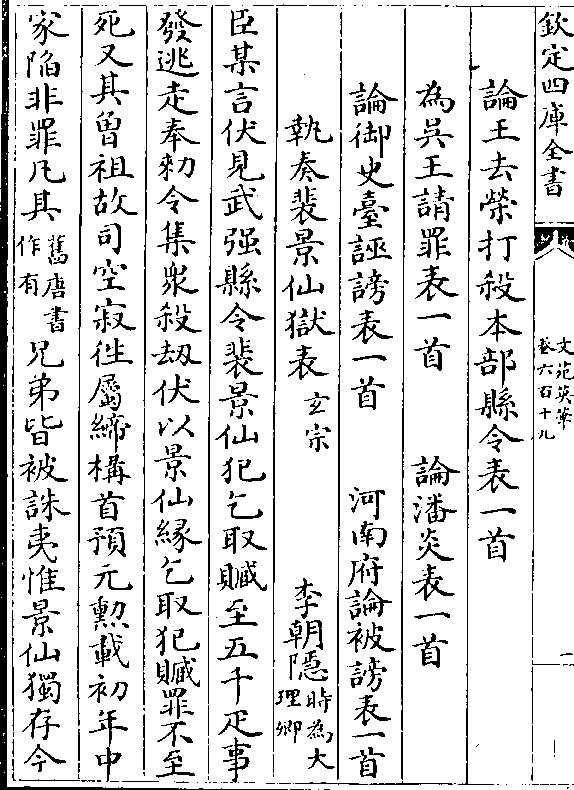 欽定四庫全書
文苑英華
卷六百十九
一
論王去榮打殺本部縣令表一首
為吳王請罪表一首 論潘炎表一首
論御史臺誣謗表一首 河南府論被謗表一首
執奏裴景仙獄表 玄宗 李朝隱 時為大理卿
臣某言伏見武强縣令裴景仙犯乞取贓至五千疋事
發逃走奉勑令集衆殺刼伏以景仙緣乞取犯贓罪不至
死又其曾祖故司空寂徃屬締構首預元勲載初年中
家陷非罪凡其 舊唐書作有 兄弟皆被誅夷惟景仙獨存今